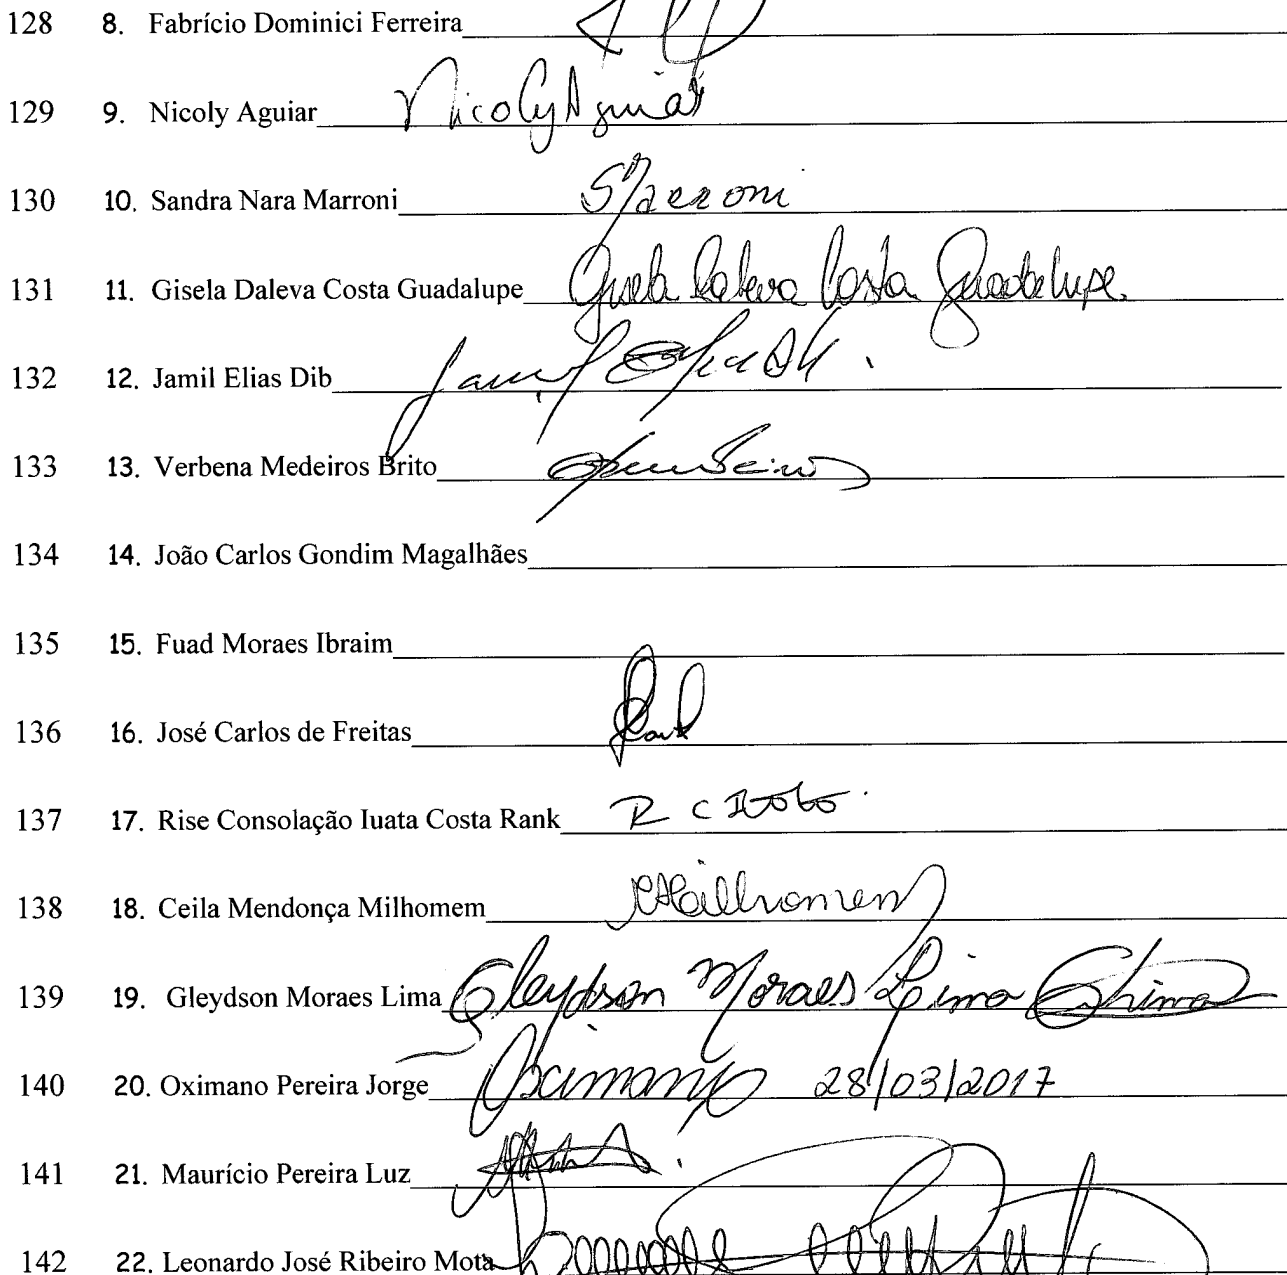 128 8. Fabrício Dominici Ferreira
129 9. Nicoly Aguiar Nicoly Aguiar
130 10. Sandra Nara Marroni SMarroni
131 11. Gisela Daleva Costa Guadalupe Gisela Daleva Costa Guadalupe.
132 12. Jamil Elias Dib Jamil
133 13. Verbena Medeiros Brito
134 14. João Carlos Gondim Magalhães
135 15. Fuad Moraes Ibraim
136 16. José Carlos de Freitas
137 17. Rise Consolação Iuata Costa Rank R C
138 18. Ceila Mendonça Milhomem CMilhomem
139 19. Gleydson Moraes Lima Gleydson Moraes Lima
140 20. Oximano Pereira Jorge Oximano 28/03/2017
141 21. Maurício Pereira Luz
142 22. Leonardo José Ribeiro Mota